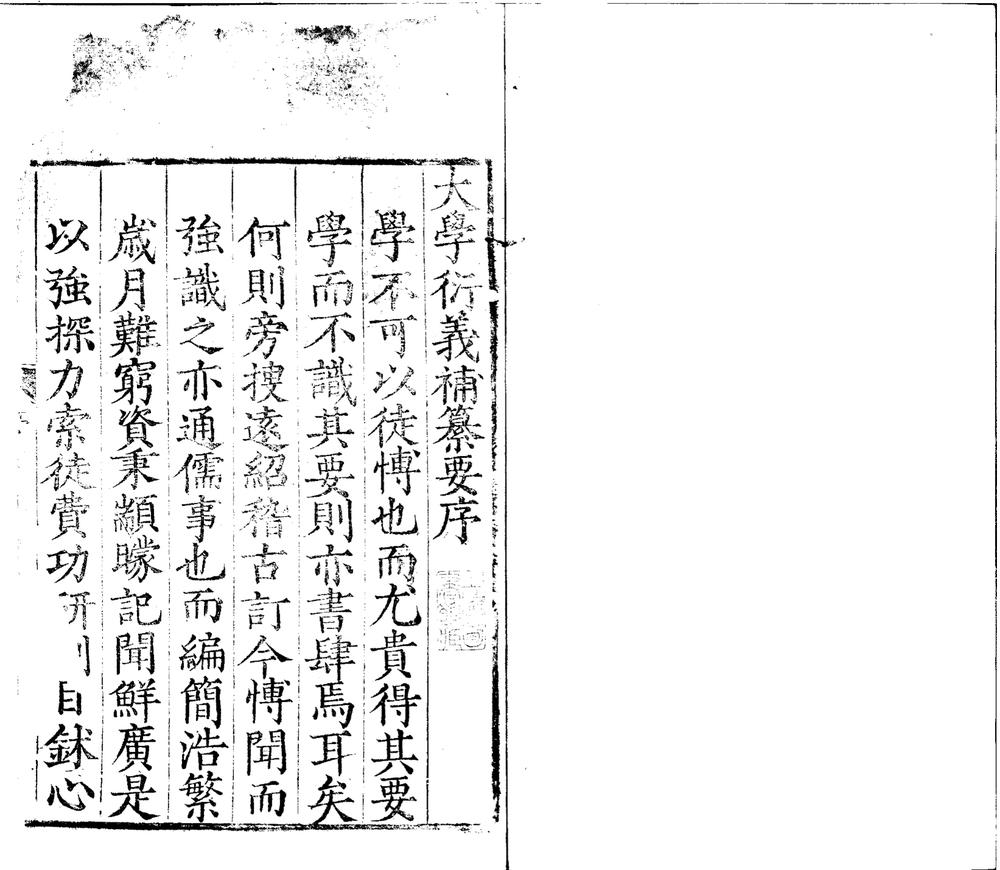 大學衍義補纂要序
學不可以徒愽也而尤貴得其要
學而不識其要則亦書肆焉耳矣
何則旁搜逺紹稽古訂今愽聞而
強識之亦通儒事也而編簡浩繁
歲月難窮資秉顓矇記聞鮮廣是
以強探力索徒費功研 目鉥心